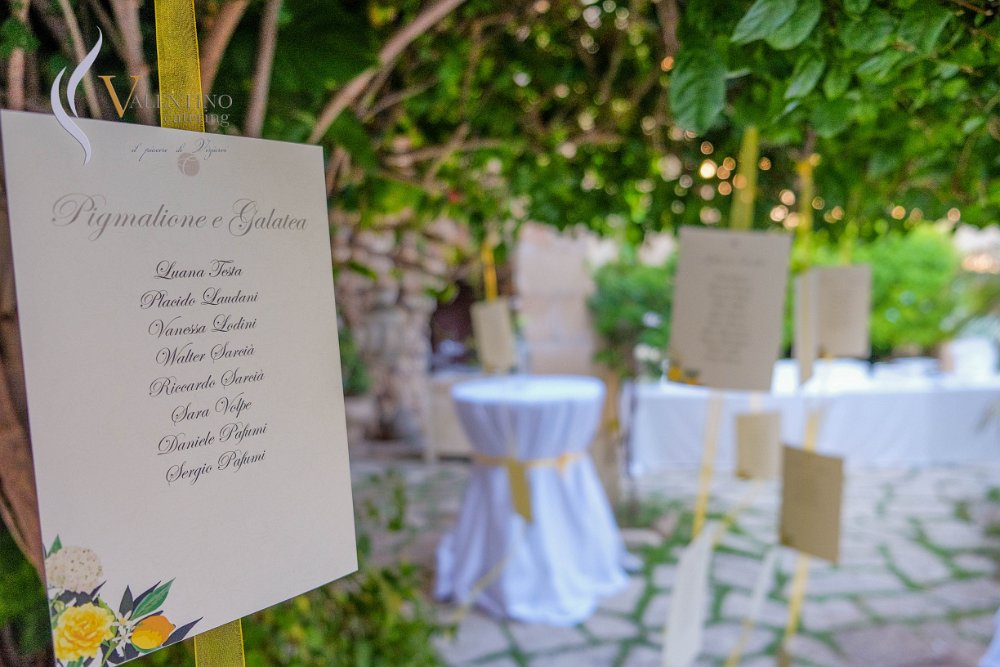 VALENTINO
catering
il piacere di Vegarsi
Pigmalione e Galatea
Luana Testa
Placido Laudani
Vanessa Lodini
Walter Sarcià
Riccardo Sarcià
Sara Volpe
Daniele Pafumi
Sergio Pafumi